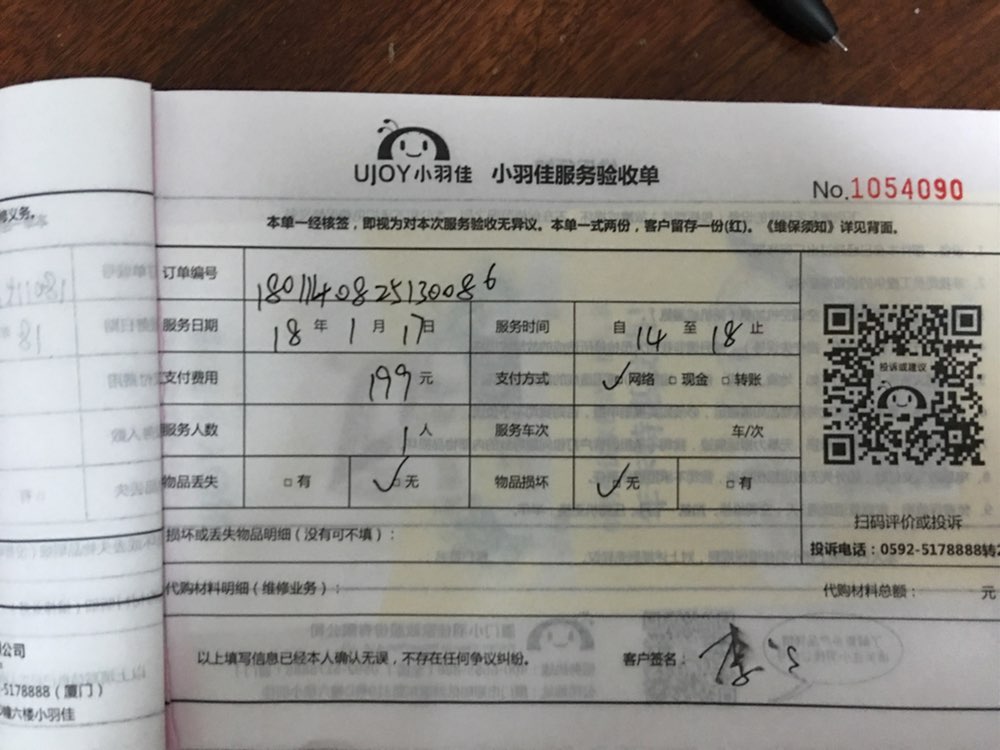 UJOY小羽佳 小羽佳服务验收单
No.1054090
本单一经核签，即视为对本次服务验收无异议。本单一式两份，客户留存一份(红)。《维保须知》详见背面。
订单编号 1801140825130086
服务日期 18 年 1 月 17 日 服务时间 自 14 至 18 止
支付费用 199 元 支付方式 ✓ 网络 □ 现金 □ 转账
服务人数 1 人 服务车次 车/次
物品丢失 □ 有 ✓□ 无 物品损坏 ✓□ 无 □ 有
投诉或建议
扫码评价或投诉
投诉电话：0592-5178888转2
损坏或丢失物品明细（没有可不填）：
代购材料明细（维修业务）： 代购材料总额： 元
以上填写信息已经本人确认无误，不存在任何争议纠纷。 客户签名：李
义务。
公司
-5178888（厦门）
幢六楼小羽佳